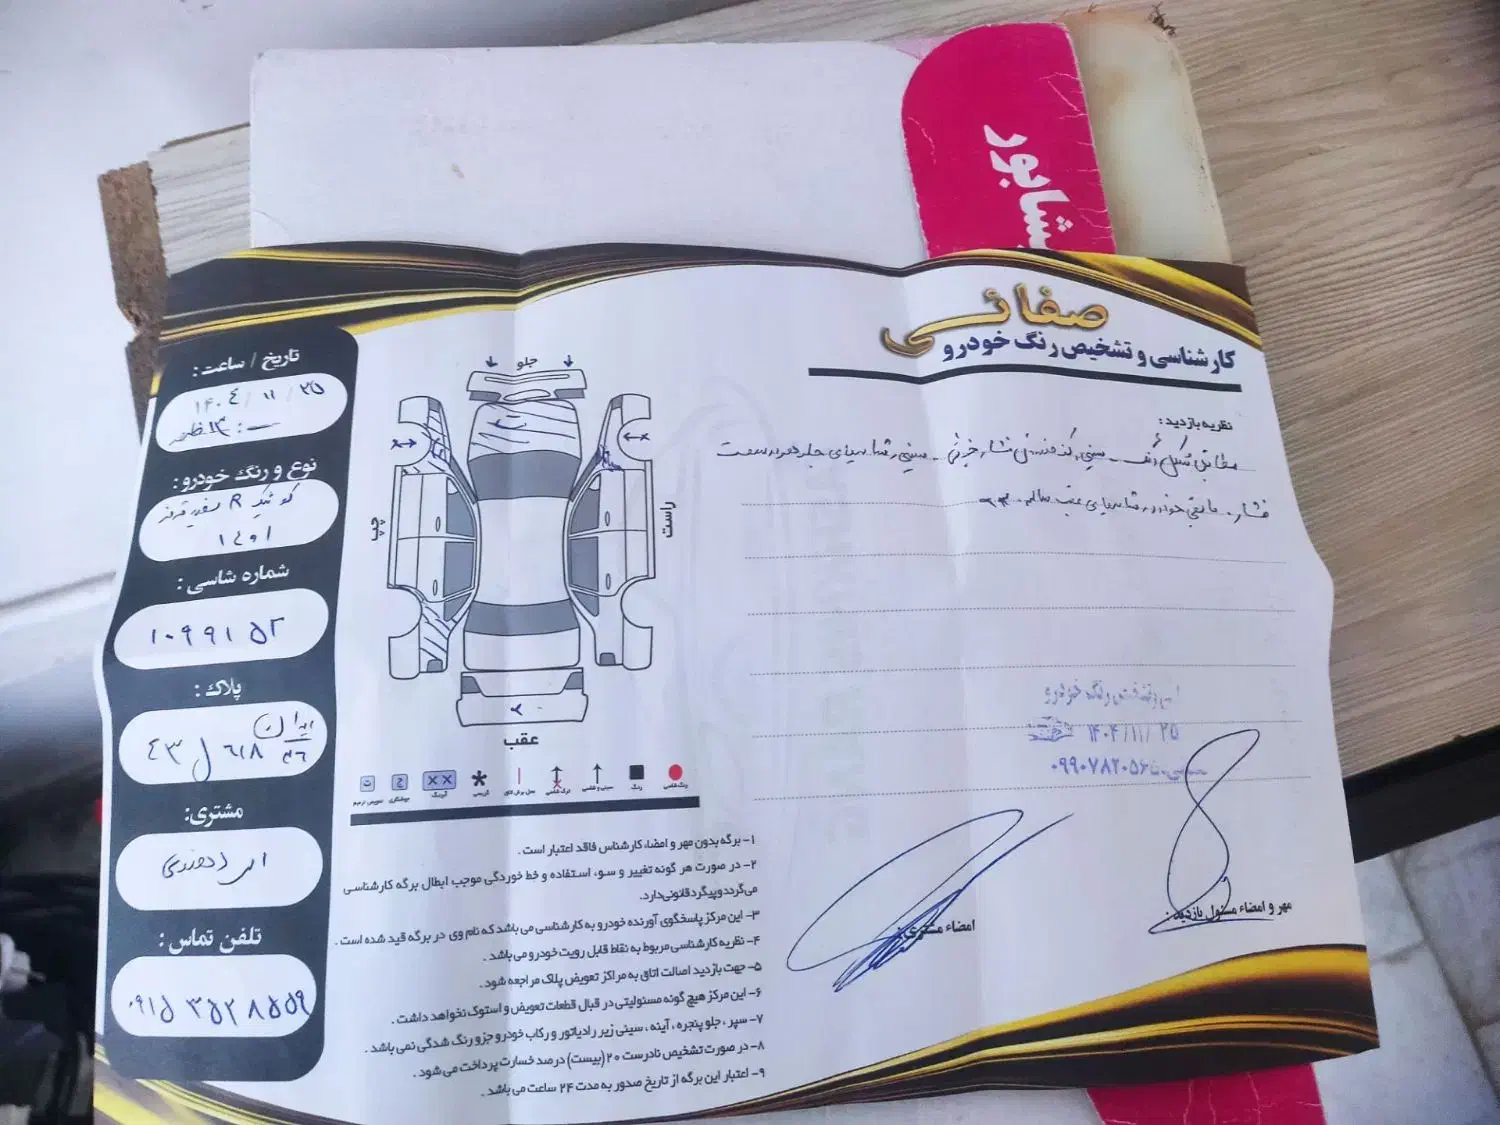 شابور
صفائی
کارشناسی و تشخیص رنگ خودرو
نظریه بازدید:
مطابق شکل رنگ - سینی
فشار - مابقی خودرو سالم
تاریخ / ساعت:
۱۴۰۴/۱۱/۲۵
۱۳ ظهر
نوع و رنگ خودرو:
کوئیک R سفید قرمز
۱۴۰۱
شماره شاسی:
۱۰۹۹۱۵۲
پلاک:
ایران
۴۳ ل ۶۱۸ ۳۶
مشتری:
تلفن تماس:
۰۹۱۵ ۳۵۲۸۵۵۹
جلو
چپ
راست
عقب
رنگ شاسی
رنگ
سینی و شاسی
ترک شاسی
۱- برگه بدون مهر و امضاء کارشناس فاقد اعتبار است.
۲- در صورت هر گونه تغییر و سوء استفاده و خط خوردگی موجب ابطال برگه کارشناسی
می‌گردد و پیگرد قانونی دارد.
۳- این مرکز پاسخگوی آورنده خودرو به کارشناسی می باشد که نام وی در برگه قید شده است.
۴- نظریه کارشناسی مربوط به نقاط قابل رویت خودرو می باشد.
۵- جهت بازدید اصالت اتاق به مراکز تعویض پلاک مراجعه شود.
۶- این مرکز هیچ گونه مسئولیتی در قبال قطعات تعویض و استوک نخواهد داشت.
۷- سپر، جلو پنجره، آینه، سینی زیر رادیاتور و رکاب خودرو جزو رنگ شدگی نمی باشد.
۸- در صورت تشخیص نادرست ۲۰ (بیست) درصد خسارت پرداخت می شود.
۹- اعتبار این برگه از تاریخ صدور به مدت ۲۴ ساعت می باشد.
تشخیص رنگ خودرو
۱۴۰۴/۱۱/۲۵
۰۹۹۰۷۸۲۰۵۶۵
امضاء مشتری:
مهر و امضاء مسئول بازدید: